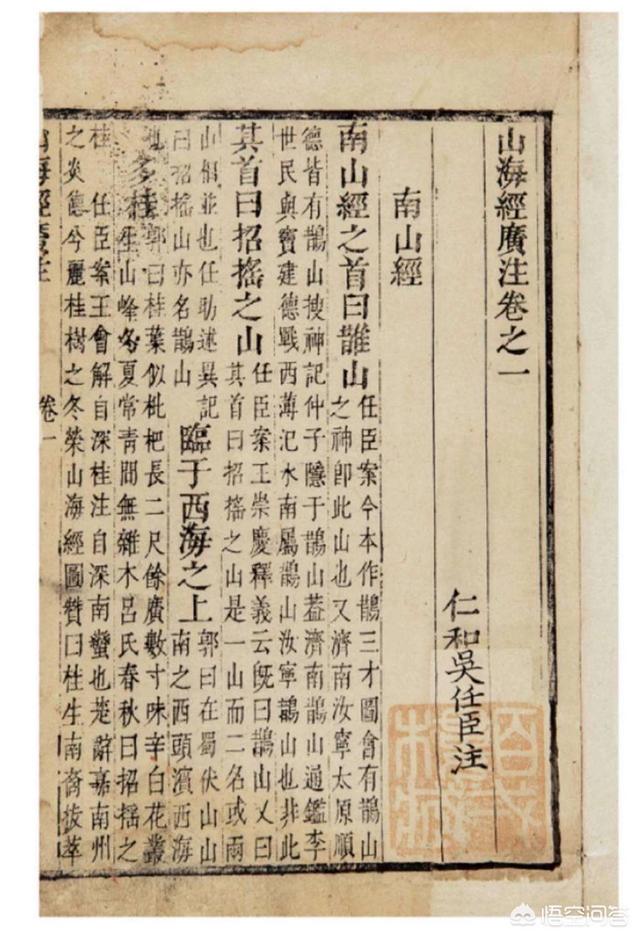 山海經廣注卷之一
仁和吳任臣注
南山經
南山經之首曰䧿山
任臣案今本作鵲三才圖會有鵲山
之神卽此山也又濟南汝寧太原順
德皆有鵲山搜神記仲子隱于鵲山葢濟南鵲山通鑑李
世民與竇建德戰西薄汜水南屬鵲山汝寧鵲山也非此
其首曰招搖之山
任臣案王崇慶釋義云旣曰鵲山又曰
其首曰招搖之山是一山而二名或兩
山相並也任昉述異記
曰招搖山亦名鵲山
臨于西海之上
郭曰在蜀伏山山
南之西頭濵西海
多桂
郭曰桂葉似枇杷長二尺餘廣數寸味辛白花叢
生山峰冬夏常青間無雜木呂氏春秋曰招搖之
桂 任臣案王會解自深桂注自深南蠻也楚辭嘉南州
之炎德兮麗桂樹之冬榮山海經圖贊曰桂生南裔拔萃
山海經廣注 卷一
悟空问答